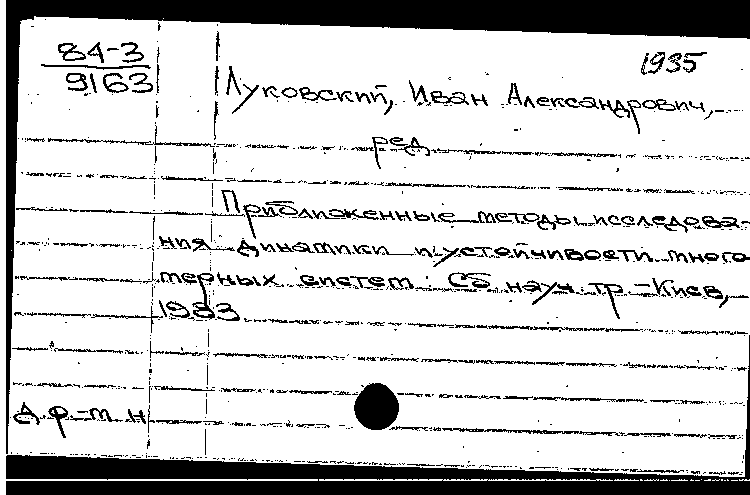 84-3
9163
1935
Луковский, Иван Александрович,
ред.
Приближенные методы исследова-
ния динамики и устойчивости много-
мерных систем: Сб. науч. тр. - Киев,
1983
д. ф.-м. н.